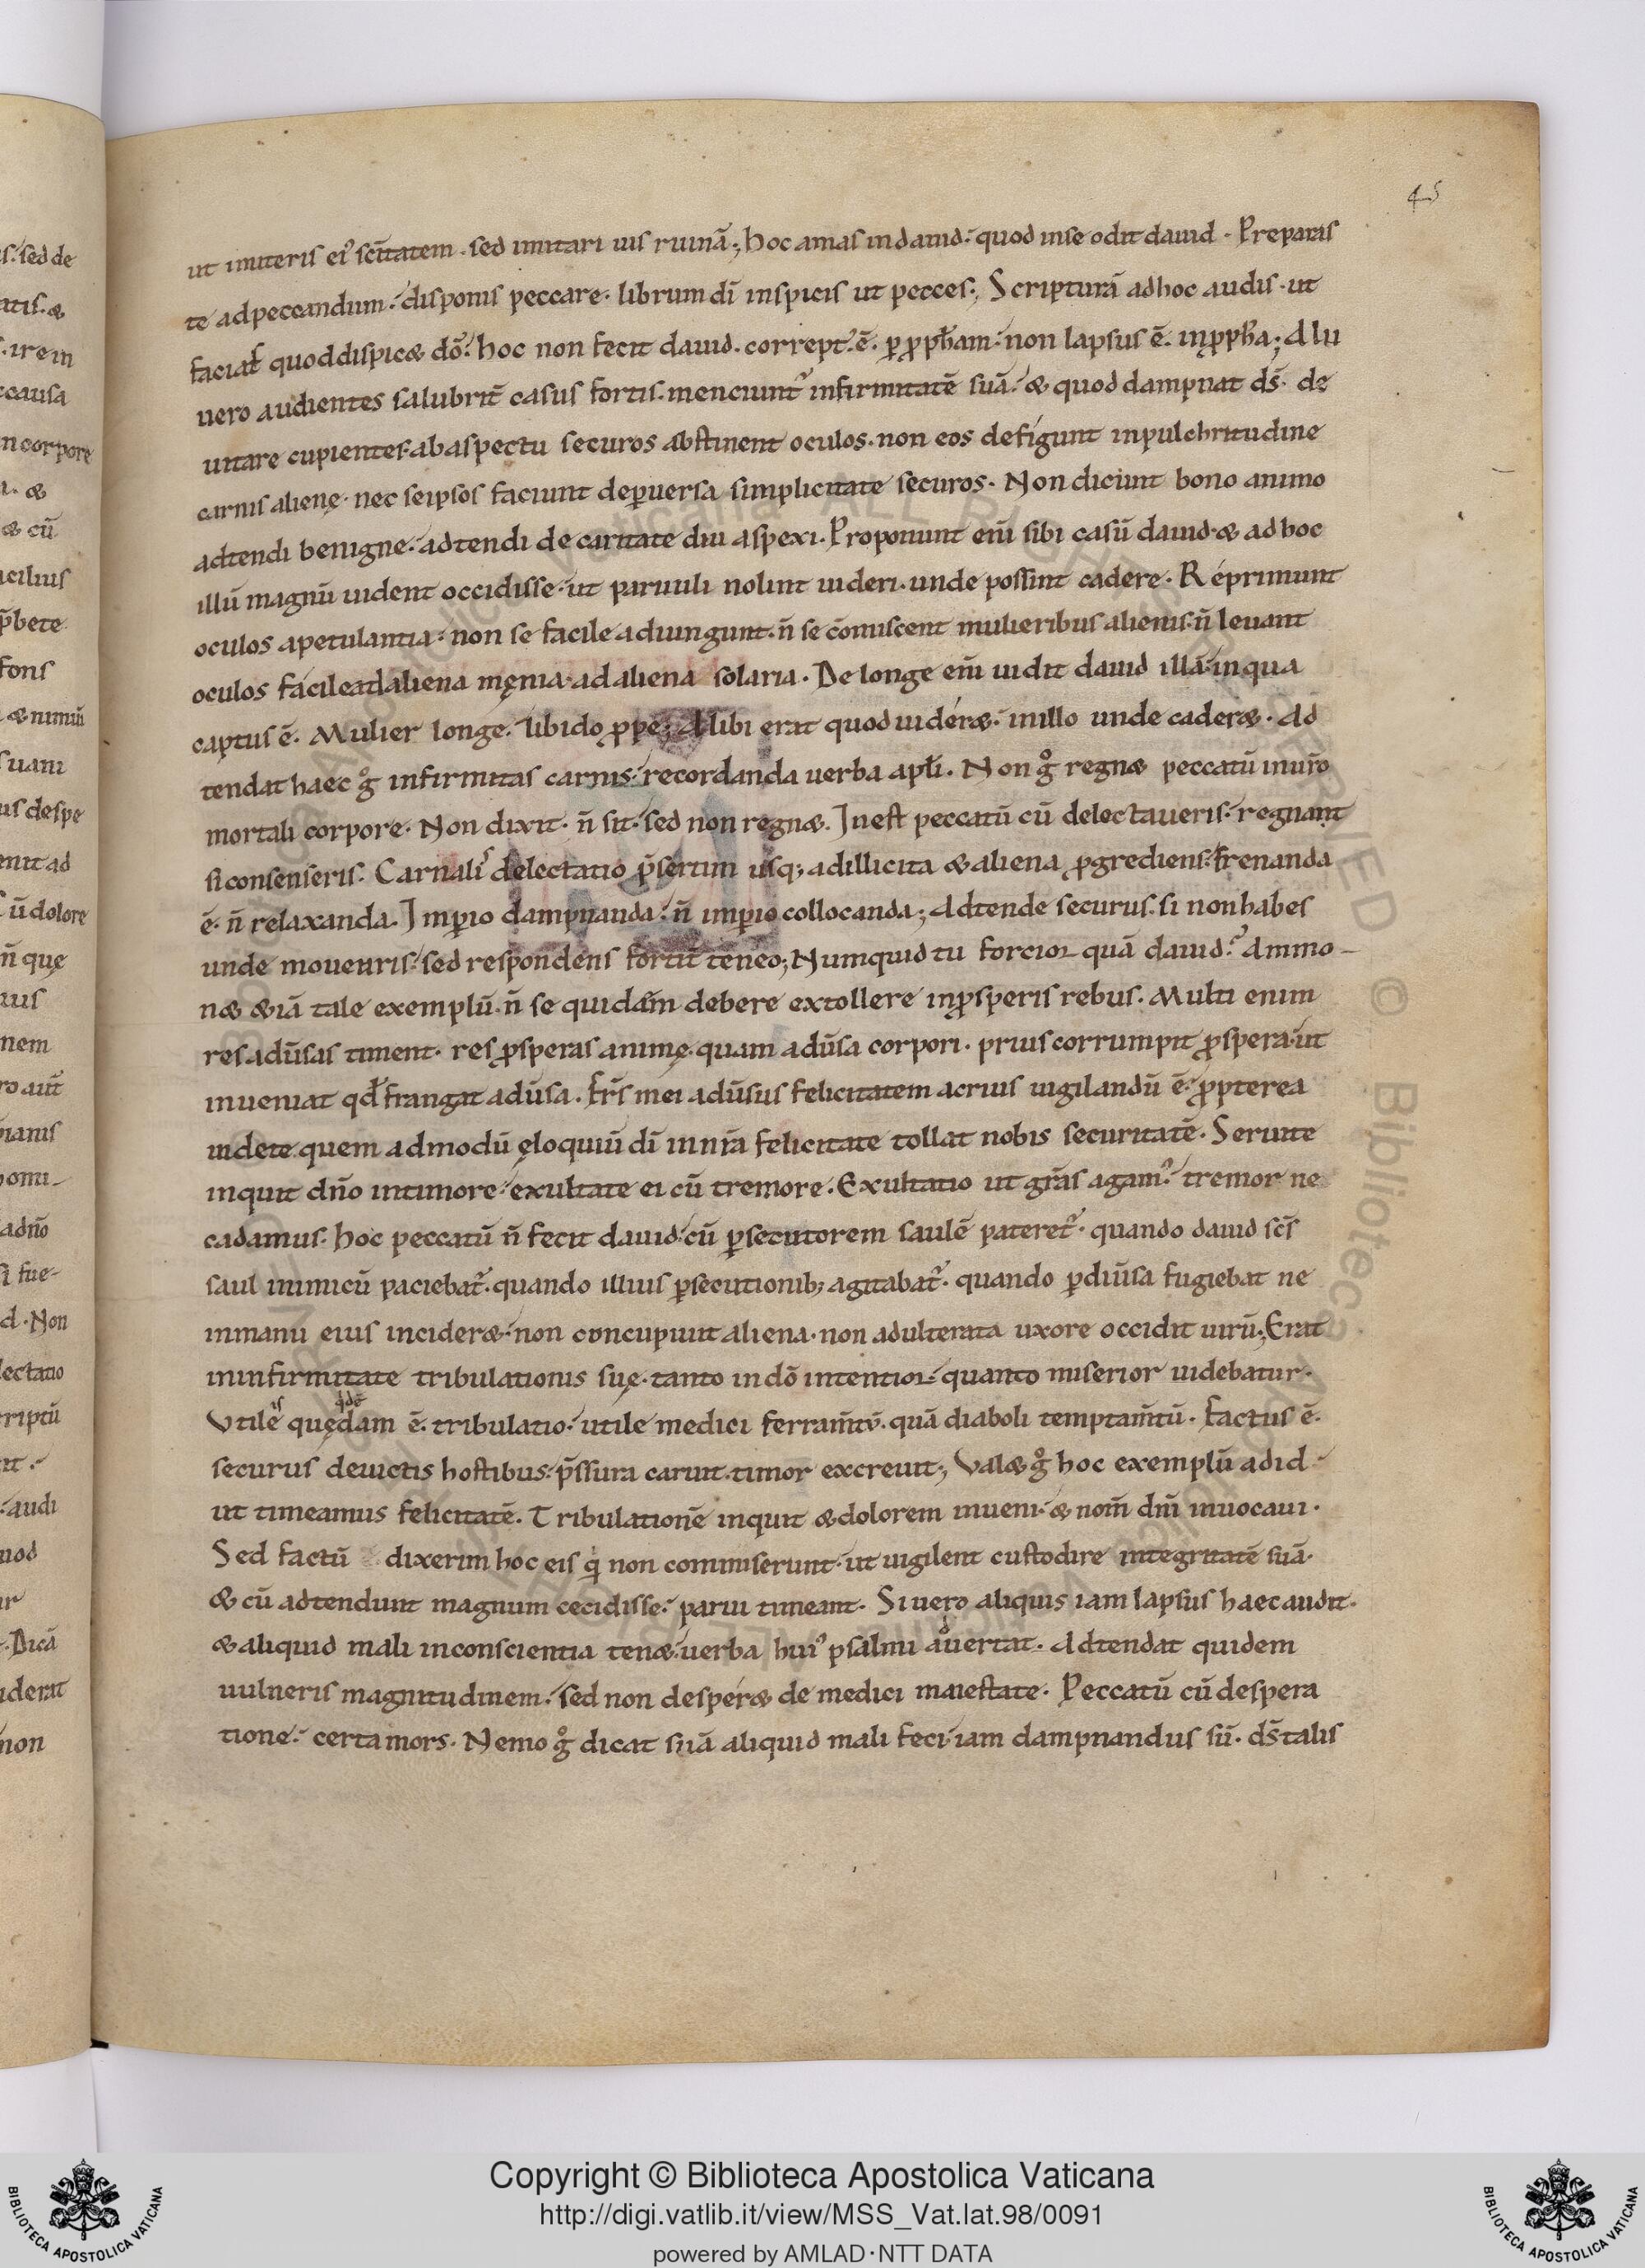 45
ut imiteris ei᾽ sc̄itatem · sed imitari uis ruinā ; hoc amas in dauid · quod in se odit dauid · Preparas
te ad peccandum · disponis peccare · librum dī inspicis ut pecces ; Scripturā ad hoc audis · ut
facias quod dispicæ dō · hoc non fecit dauid · corrept᾽ ē · ꝑ ꝓph̄am · non lapsus ē · in ꝓph̄a ; Alii
uero audientes salubrit̄ casus fortis · menciunt᾽ infirmitatē suā · & quod dampnat ds̄ · de
uitare cupientes · ab aspectu securos abstinent oculos · non eos defigunt in pulchritudine
carnis alienę · nec se ipsos faciunt de ꝑuersa simplicitate securos · Non dicunt bono animo
adtendi benigne · adtendi de caritate diu aspexi · Proponunt eni̅ sibi casū dauid · & ad hoc
illū magnū uident occidisse · ut paruuli nolint uideri · unde possint cadere · Reprimunt
oculos a petulantia · non se facile adiungunt · n̄ se com̄iscent mulieribus alienis · n̄ leuant
oculos facile ad aliena męnia · ad aliena solaria · De longe eni̅ uidit dauid illā · in qua
captus ē · Mulier longe · libido ꝓpe ; Alibi erat quod uideræ · in illo unde caderæ · Ad
tendat haec g̊ infirmitas carnis · recordanda uerba apl̄i · Non g̊ regnæ peccatū in ur̄o
mortali corpore · Non dixit · n̄ sit · sed non regnæ · Inest peccatū cū delectaueris · regnant
si consenseris · Carnalis delectatio p̄sertim usq; ad illicita & aliena ꝓgrediens · frenanda
ē · n̄ relaxanda · Imꝑio dampnanda · n̄ imꝑio collocanda ; Adtende securus · si non habes
unde mouearis · sed respondens fortit̄ teneo ; Numquid tu forcior quā dauid · Ammo-
næ &iā tale exemplū · n̄ se quidam̄ debere extollere in ꝓsperis rebus · Multi enim
res adūsas timent · res ꝓsperas animę · quam adūsa corpori · prius corrumpit ꝓspera · ut
inueniat qđ frangat adūsa · Fr̄s mei adūsus felicitatem acrius uigilandū ē · ꝓpterea
uidete quem admodū ęloquiū dī in nr̄a felicitate tollat nobis securitatē · Seruite
inquit dn̄o in timore · exultate ei cū tremore · Exultatio ut gr̄as agam᾽ · tremor ne
cadamus · hoc peccatū n̄ fecit dauid · cū ꝑsecutorem saulē pateret᾽ · quando dauid sc̄s
saul inimicū paciebat᾽ · quando illius ꝑsecutionib; agitabat᾽ · quando ꝑ diūsa fugiebat ne
in manu eius incideræ · non concupiuit aliena · non adulterata uxore occidit uirū ; Erat
in infirmitate tribulationis suę · tanto in dō intentior · quanto miserior uidebatur ·
Utilis quędam ē · tribulatio · utile medici ferram̄tū · quā diaboli temptam̄tū · Factus ē ·
securus deuictis hostibus · p̄ssura caruit · timor excreuit ; Valæ g̊ hoc exemplū ad id ·
ut timeamus felicitatē · Tribulationē inquit & dolorem inueni · & nom̄ dn̄i inuocaui ·
Sed factū dixerim hoc eis qi non commiserunt · ut uigilent custodire integritatē suā ·
& cū adtendunt magnum cecidisse · parui timeant · Si uero aliquis iam lapsus haec audit ·
& aliquid mali in conscientia tenæ · uerba hui᾽ psalmi aduertat · Adtendat quidem
uulneris magnitudinem · sed non desperæ de medici maiestate · Peccatū cū despera
tione · certa mors · Nemo g̊ dicat aliquid mali feci · iam dampnandus sū · ds̄ talis
Copyright © Biblioteca Apostolica Vaticana
http://digi.vatlib.it/view/MSS_Vat.lat.98/0091
powered by AMLAD·NTT DATA
BIBLIOTECA APOSTOLICA VATICANA
BIBLIOTECA APOSTOLICA VATICANA